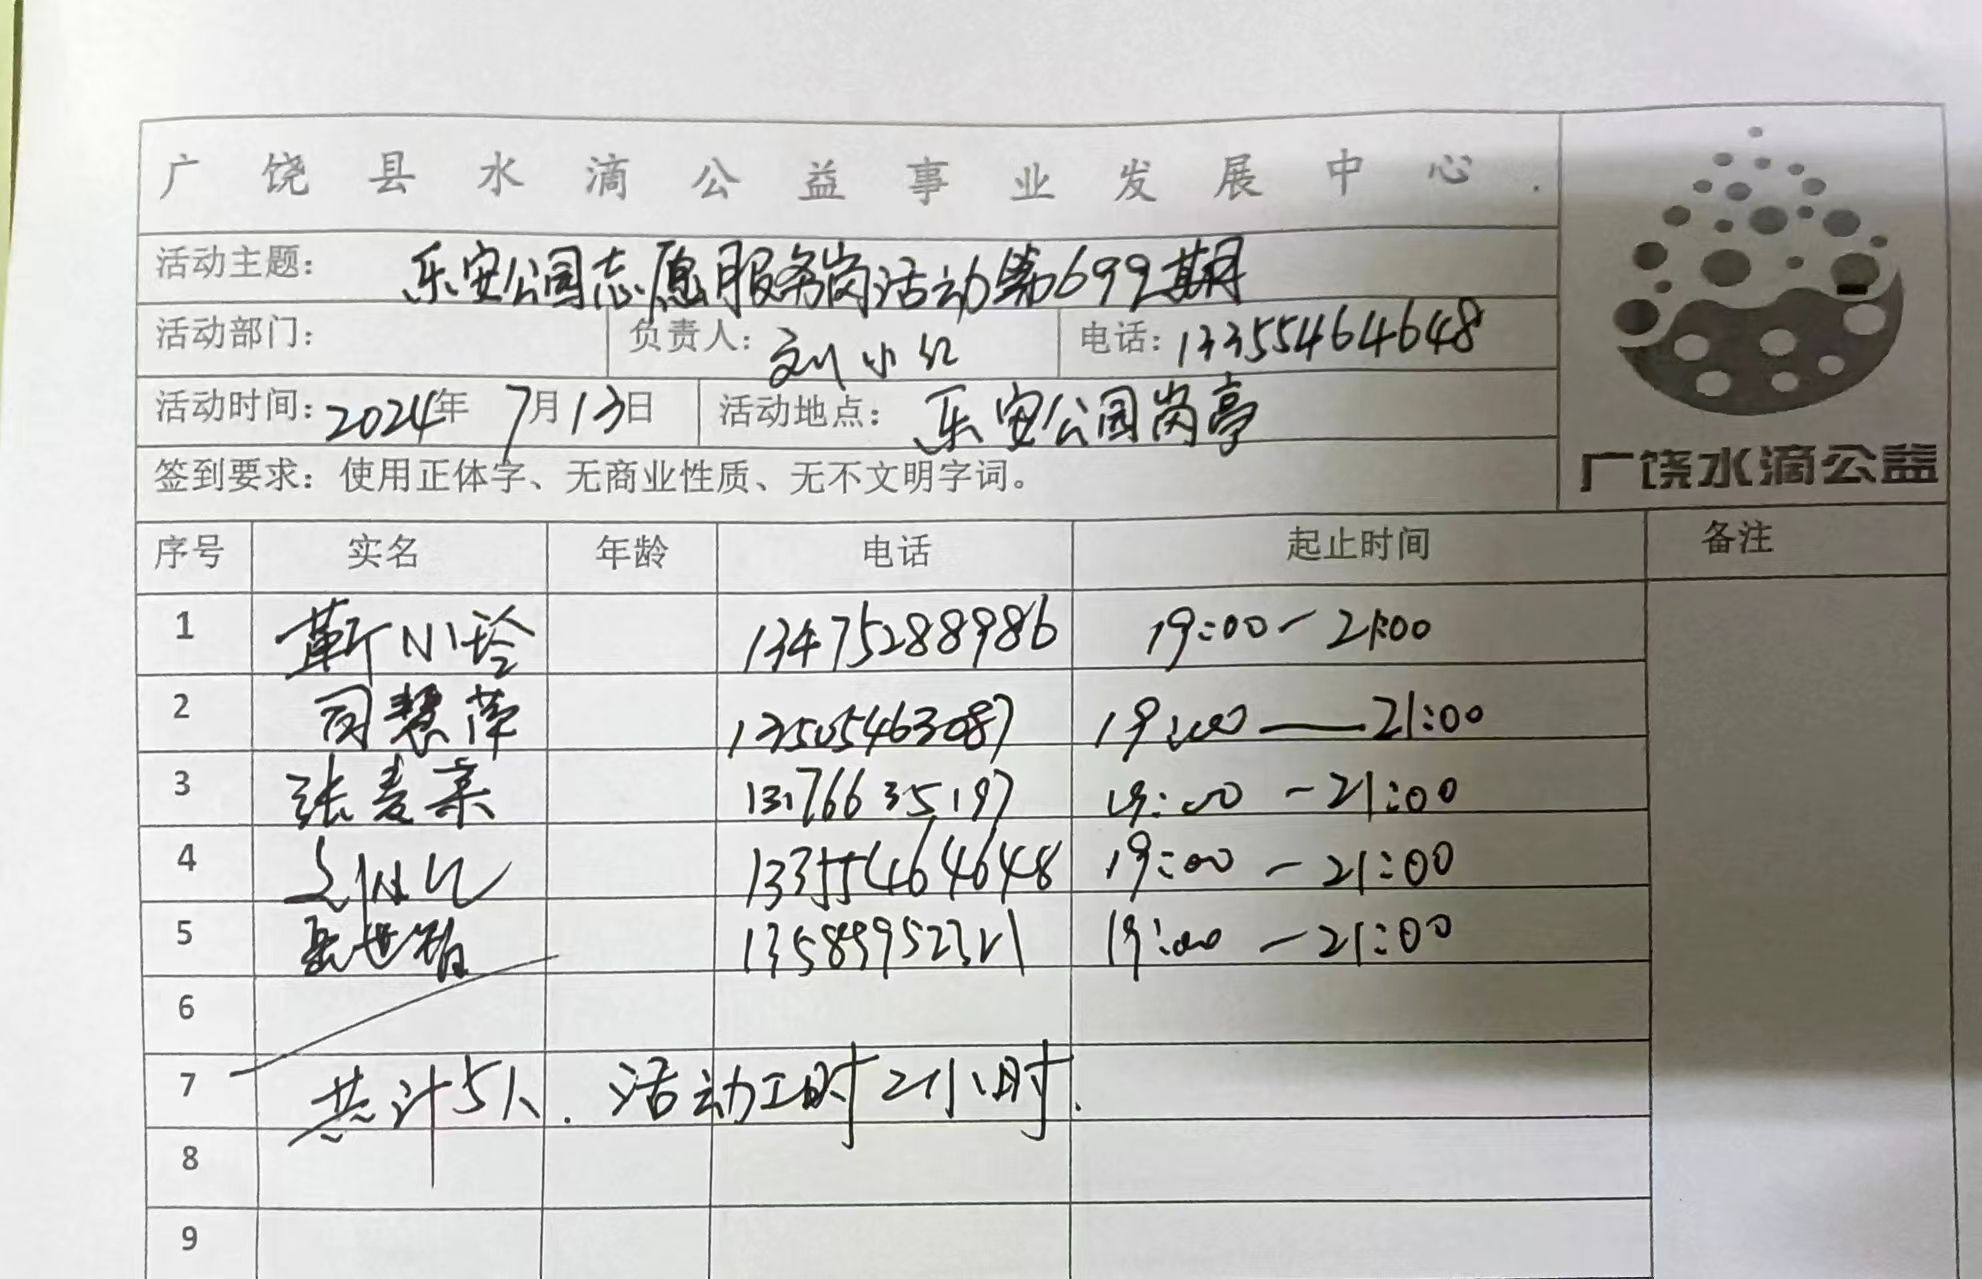 广饶县水滴公益事业发展中心.
活动主题: 乐安公园志愿服务岗活动第699期
活动部门: 负责人: 刘小红 电话: 13355464648
活动时间: 2024年 7月13日 活动地点: 乐安公园岗亭
签到要求: 使用正体字、无商业性质、无不文明字词。
广饶水滴公益
序号 实名 年龄 电话 起止时间 备注
1 靳小玲 13475288986 19:00-21:00
2 司慧萍 13505463087 19:00——21:00
3 张麦菜 13176635197 19:00-21:00
4 刘小红 13355464648 19:00-21:00
5 13589952321 19:00-21:00
6
7 共计5人. 活动工时2小时.
8
9